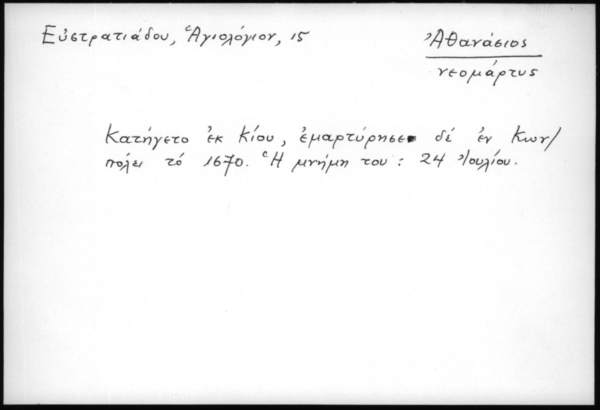 Εὐστρατιάδου, Ἁγιολόγιον, 15
Ἀθανάσιος
νεομάρτυς
Κατήγετο ἐκ Κίου, ἐμαρτύρησε δέ ἐν Κων/
πόλει τό 1670. Ἡ μνήμη του : 24 Ἰουλίου.